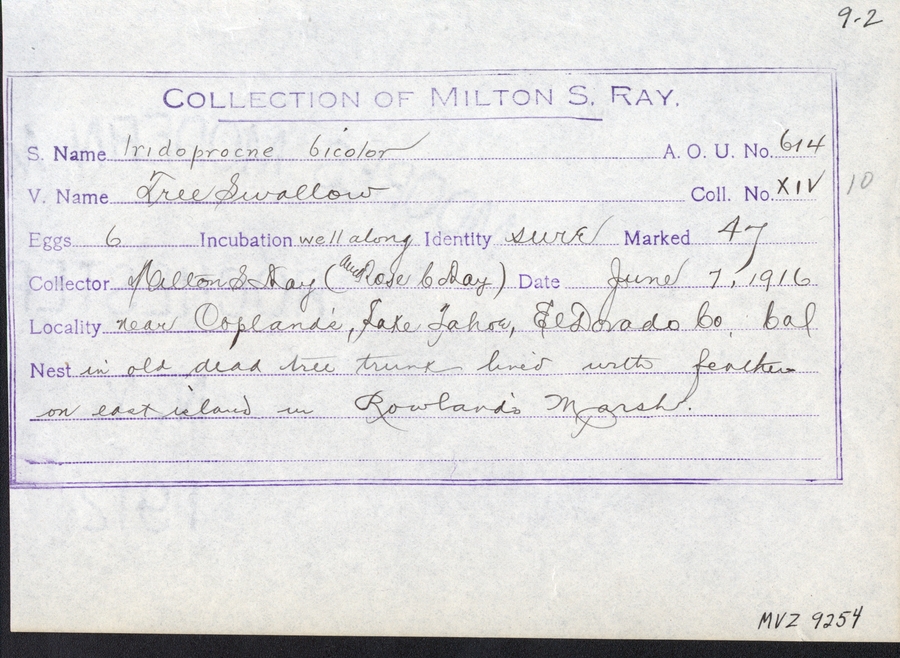 9-2
COLLECTION OF MILTON S. RAY.
S. Name Iridoprocne bicolor A. O. U. No. 614
V. Name Tree Swallow Coll. No. XIV 10
Eggs 6 Incubation well along Identity sure Marked 47
Collector Milton S Ray (and Rose C Ray) Date June 7, 1916
Locality near Copland's, Lake Tahoe, El Dorado Co, Cal
Nest in old dead tree trunk lined with feathers
on east island in Rowland's Marsh.
MVZ 9254